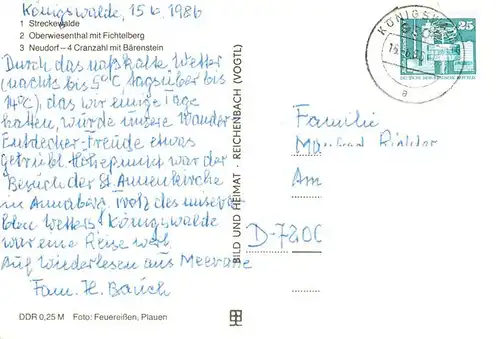 Königswalde, 15.6.1986
1 Streckewalde
2 Oberwiesenthal mit Fichtelberg
3 Neudorf – 4 Cranzahl mit Bärenstein
Durch das naßkalte Wetter
(nachts bis 5°C tagsüber bis
14°C), das wir einige Tage
hatten, wurde unsere Wander
Entdecker-Freude etwas
getrübt. Höhepunkt war der
Besuch der St. Annenkirche
in Annaberg. Trotz des
Wetters: Königswalde
war eine Reise wert.
Auf Wiederlesen aus Meerane
Fam. H. Bauch
DDR 0,25 M Foto: Feuereißen, Plauen
BILD UND HEIMAT · REICHENBACH (VOGTL)
25
Familie
Manfred Richter
Am
D-7200